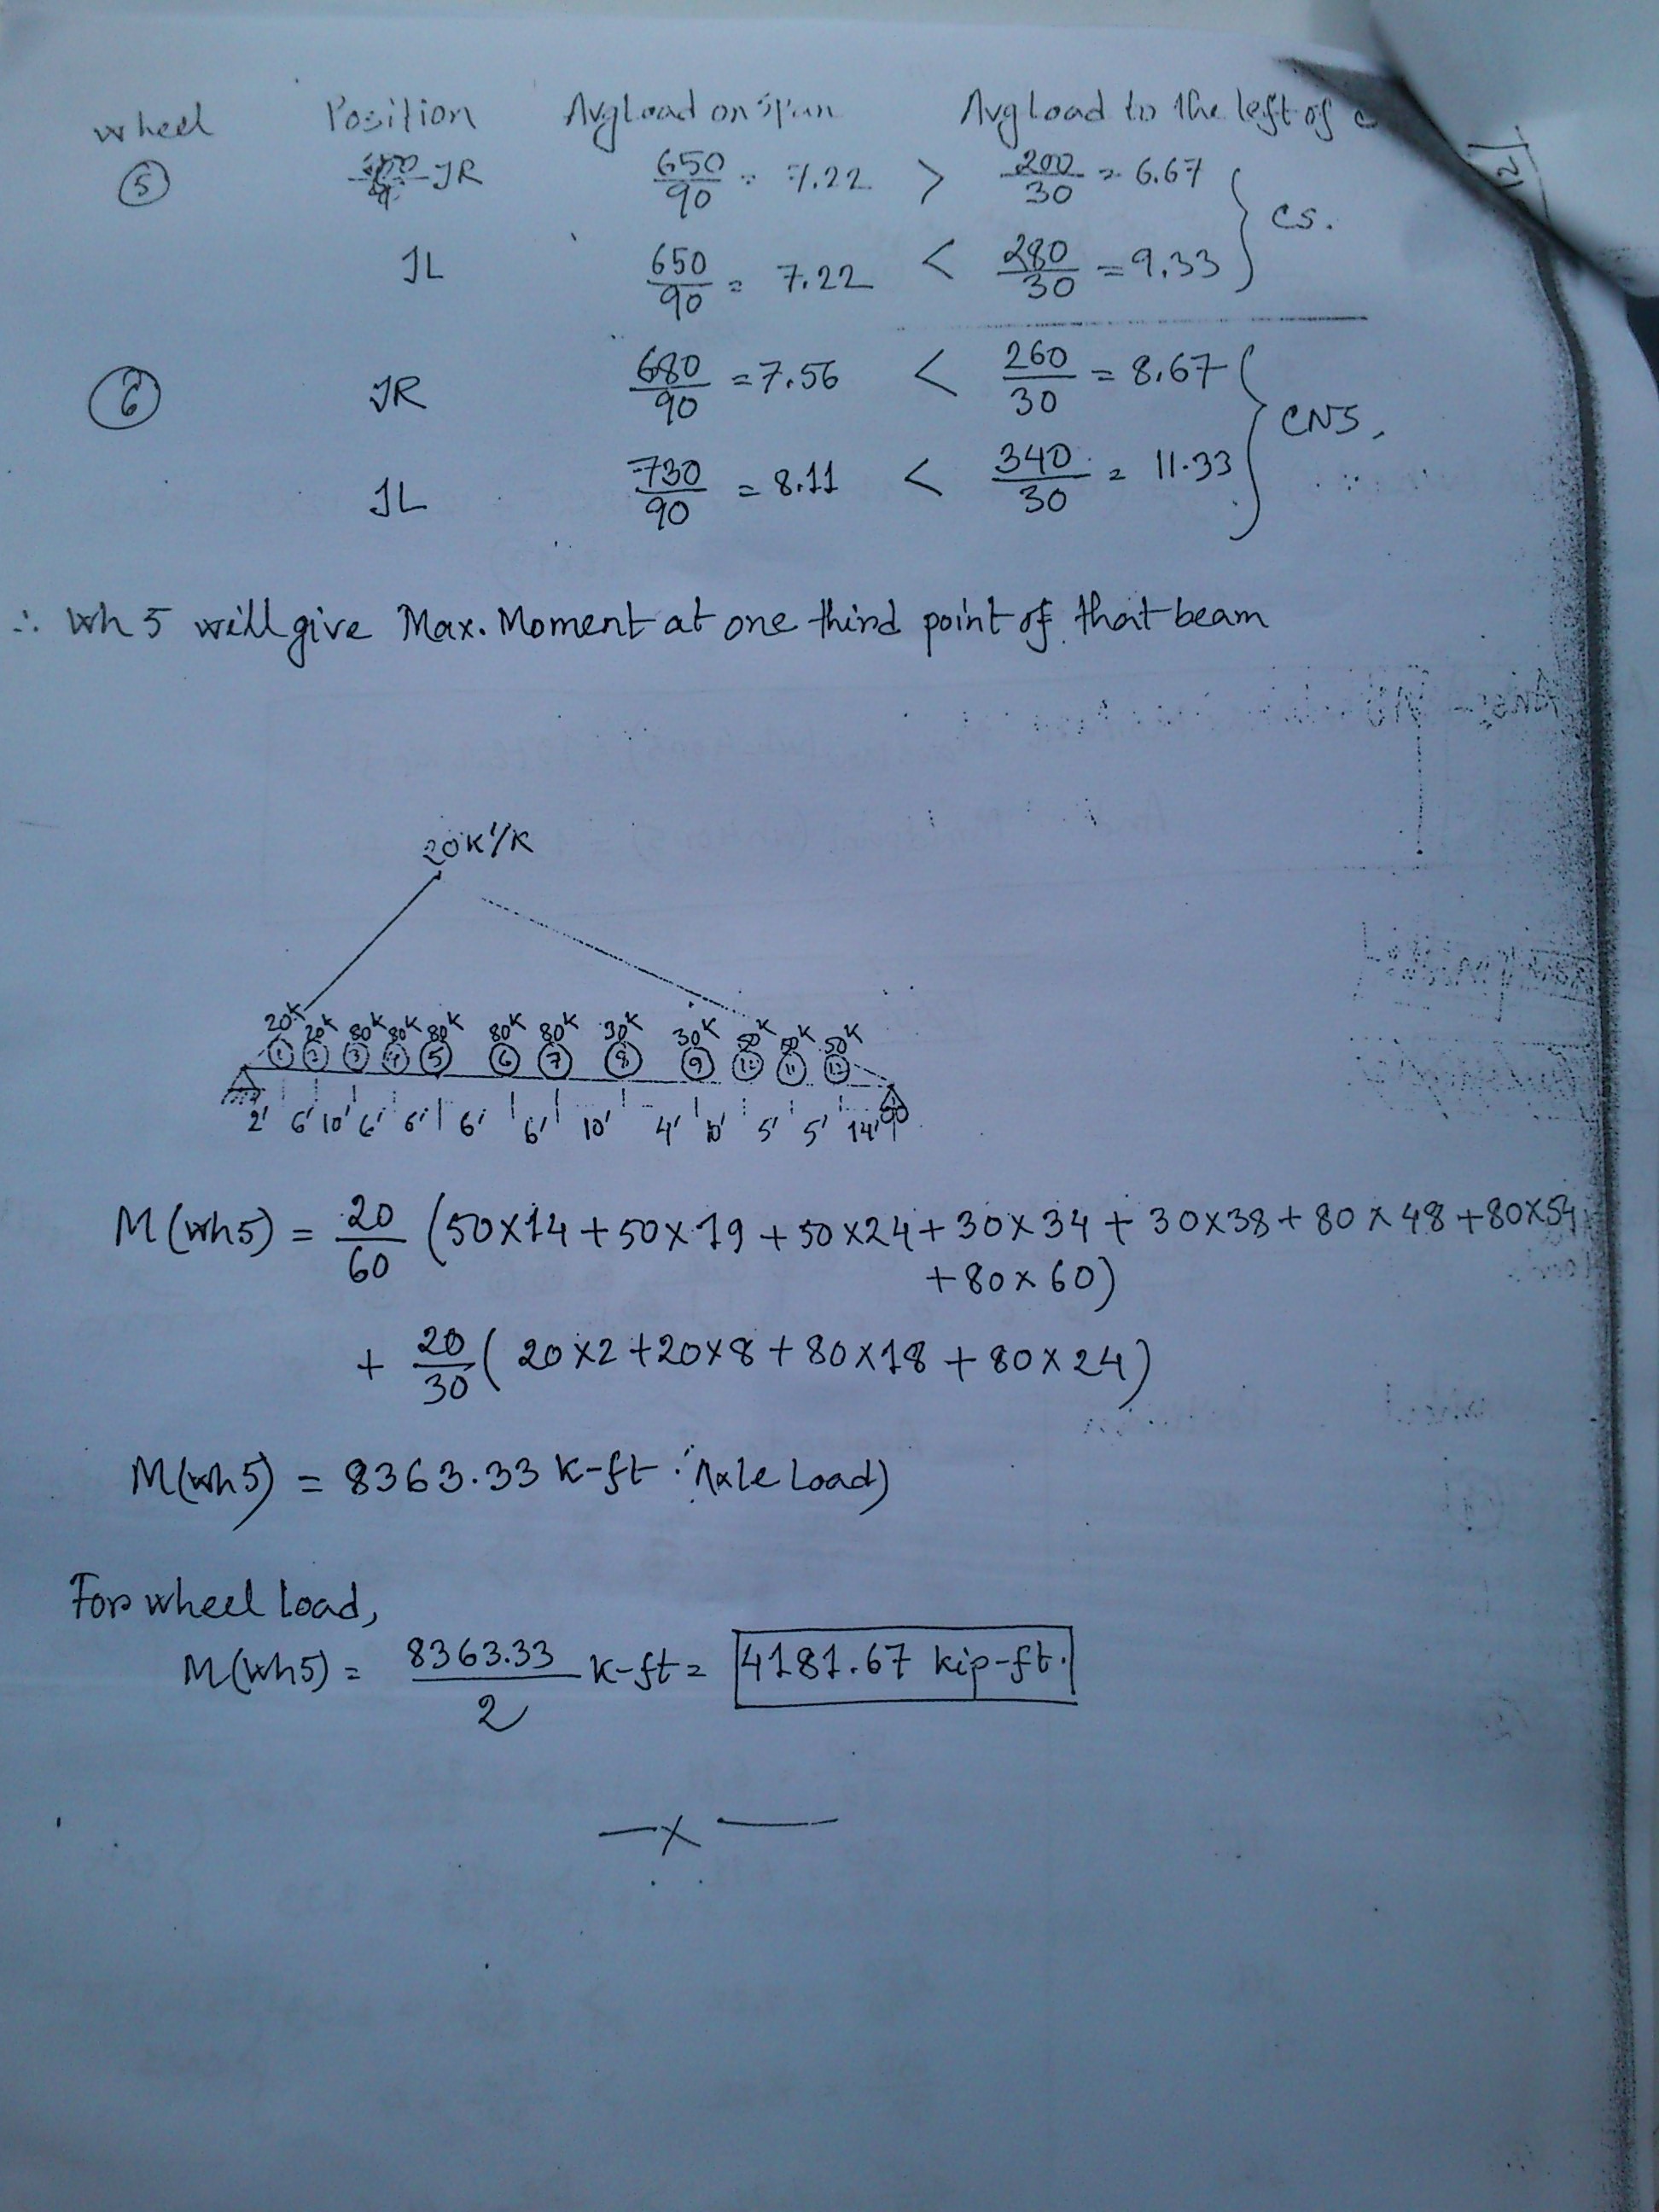 wheel Position Avg Load on Span Avg Load to the left of
⑤ JR 650/90 = 7.22 > 200/30 = 6.67
CS.
JL 650/90 = 7.22 < 280/30 = 9.33
⑥ JR 680/90 = 7.56 < 260/30 = 8.67
CNS.
JL 730/90 = 8.11 < 340/30 = 11.33
∴ Wh 5 will give Max. Moment at one third point of that beam
20K'/K
20K 20K 80K 80K 80K 80K 80K 30K 30K 50K 50K 50K
① ② ③ ④ ⑤ ⑥ ⑦ ⑧ ⑨ ⑩ ⑪ ⑫
2' 6' 10' 6' 6' 6' 6' 10' 4' 10' 5' 5' 14'
M(Wh5) = 20/60 (50×14 + 50×19 + 50×24 + 30×34 + 30×38 + 80×48 + 80×54
+ 80×60)
+ 20/30 (20×2 + 20×8 + 80×18 + 80×24)
M(Wh5) = 8363.33 K-ft. Axle Load)
For wheel Load,
M(Wh5) = 8363.33/2 K-ft = 4181.67 kip-ft.
—x—